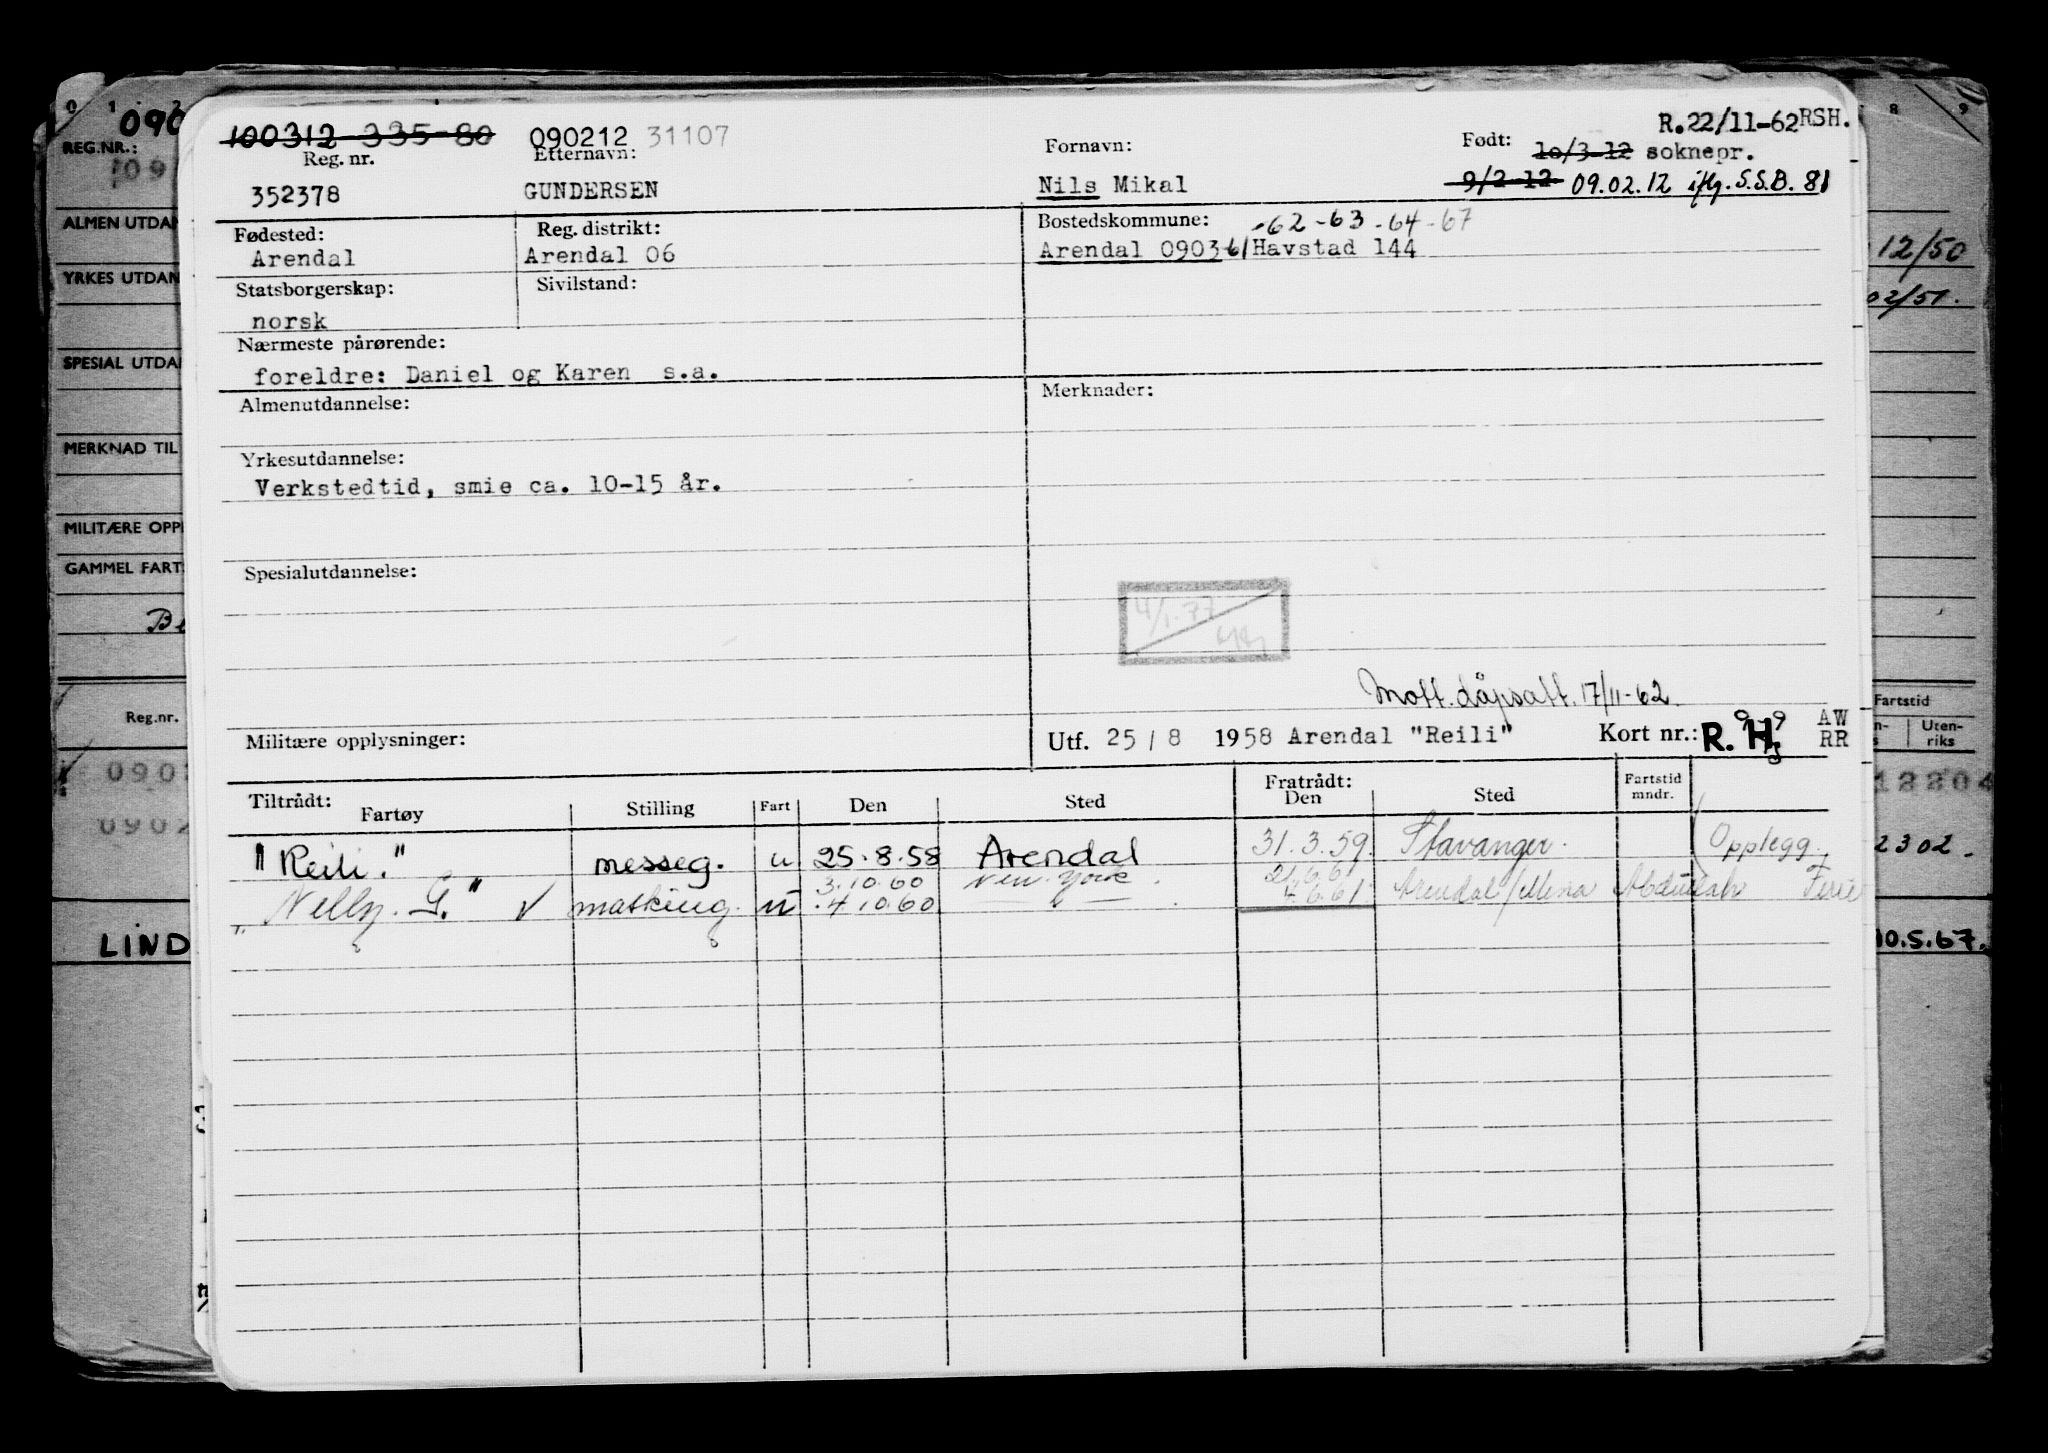 R.22/11-62 RSH.
100312 335-80 090212 31107
Reg. nr. Etternavn: Fornavn: Født: 10/3-12 soknepr.
352378 GUNDERSEN Nils Mikal 9/2-12 09.02.12 iflg. S.S.B. 81
Fødested: Reg. distrikt: Bostedskommune: -62-63-64-67
Arendal Arendal 06 Arendal 0903-61 Havstad 144
Statsborgerskap: Sivilstand:
norsk
Nærmeste pårørende:
foreldre: Daniel og Karen s.a.
Almenutdannelse: Merknader:
Yrkesutdannelse:
Verkstedtid, smie ca. 10-15 år.
Spesialutdannelse:
4/1.77
Mott. dåpsatt. 17/11-62.
Militære opplysninger: Utf. 25/8 1958 Arendal "Reili" Kort nr.: R.H. AW
RR
Tiltrådt: Fratrådt: Fartstid
Fartøy Stilling Fart Den Sted Den Sted mndr.
"Reili." messeg. u 25.8.58 Arendal 31.3.59. Stavanger. Opplegg.
3.10.60 New York
"Nelly. G." √ matking. u 4.10.60 4.6.61 Arendal/Mena Abdullah Ferie
090
REG.NR.:
109
ALMEN UTDAN
YRKES UTDAN
SPESIAL UTDA
MERKNAD TIL
MILITÆRE OPP
GAMMEL FART
Reg.nr.
0902
LIND
8 9
12/50
02/51.
Fartstid
Uten-
riks
12204
2302.
10.5.67.